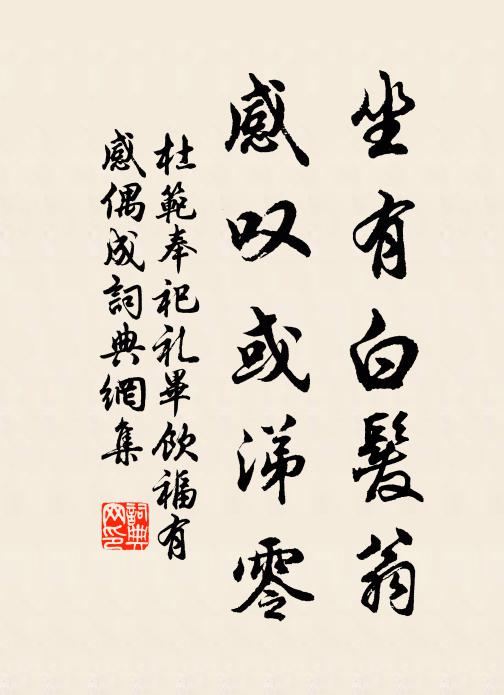 坐有白髮翁
感叹或涕零
杜範奉祀礼畢飲福有
感偶成詞典網集
詞典网印